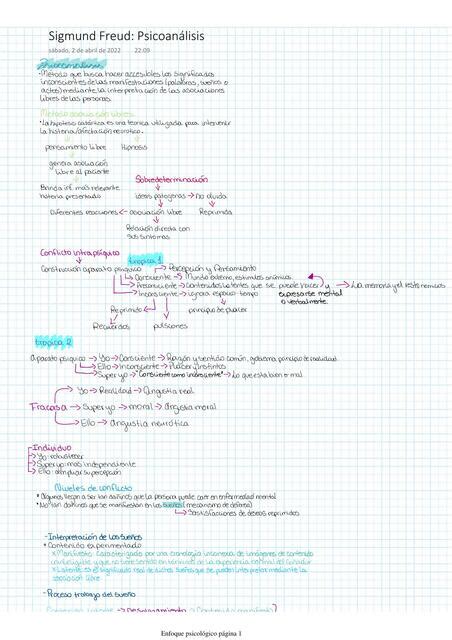 Sigmund Freud: Psicoanálisis
sábado, 2 de abril de 2022 22:09
Psicoanálisis
• Método que busca hacer accesibles los significados
inconscientes de las manifestaciones (palabras, sueños o
actos) mediante la interpretación de las asociaciones
libres de las personas.
Método asociación libres
• La hipotesis catártica es una técnica utilizada para intervenir
la histeria/afectación neurótico.
pensamiento libre Hipnosis
genera asociación
libre al paciente
Sobredeterminación
Brinda inf. mas relevante
historia presentado
ideas patogenas → No olvida
Diferentes reacciones ← asociación libre Reprimida
Relación directa con
sus sintomas
Conflicto intrapsíquico
tropica 1
Construcción aparato psíquico → Percepción y Pensamiento
Consciente → Mundo externo, estimulos anímicos.
Preconsciente → Contenidos latentes que se puede hacer y → La memoria y el resto nemicos
expresarse mental
o verbalmente.
Inconsciente → Lógica espacio tiempo
Reprimido principio de placer
Recuerdos pulsiones
tropica 2
Aparato psiquico → Yo → Consciente → Razón y sentido común, gobierna principio de realidad.
Ello → Inconsciente → Placer/instintos
Super yo → "Consciente como inconsciente" → Lo que esta bien o mal
Yo → Realidad → Angustia real
Fracasa → Super yo → moral → Angustia moral
Ello → Angustia neurótica
Individuo
Yo: robustecer
Super yo: mas independiente
Ello: ampliar su percepción
Niveles de conflicto
* Algunos llegan a ser tan dañinos que la persona puede caer en enfermedad mental
* No tan dañinos que se manifiestan en los sueños (mecanismo de defensa)
Satisfacciones de deseos reprimidos
- Interpretación de los sueños
* Contenido experimentado
* Manifiesto: Caracterizado por una cronología inconexa de imágenes de contenido
* Latente: es el significado real de dichos sueños que se pueden interpretar mediante la
asociación libre
- Proceso trabajo del sueño
Contenido latente → Desplazamiento → Contenido manifiesto
Enfoque psicológico página 1